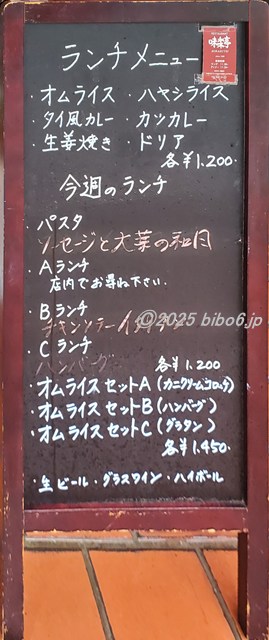 ランチメニュー
味楽亭
・オムライス ・ハヤシライス
・タイ風カレー ・カツカレー
・生姜焼き ・ドリア
各¥1.200.
今週のランチ
・パスタ
ソーセージと大葉の和風
・Aランチ
店内でお尋ね下さい.
・Bランチ
チキンソテー
©2025 bibo6.jp
・Cランチ
ハンバーグ
各¥1.200
・オムライスセットA(カニクリームコロッケ)
・オムライスセットB(ハンバーグ)
・オムライスセットC(グラタン)
各¥1.450.
・生ビール・グラスワイン・ハイボール